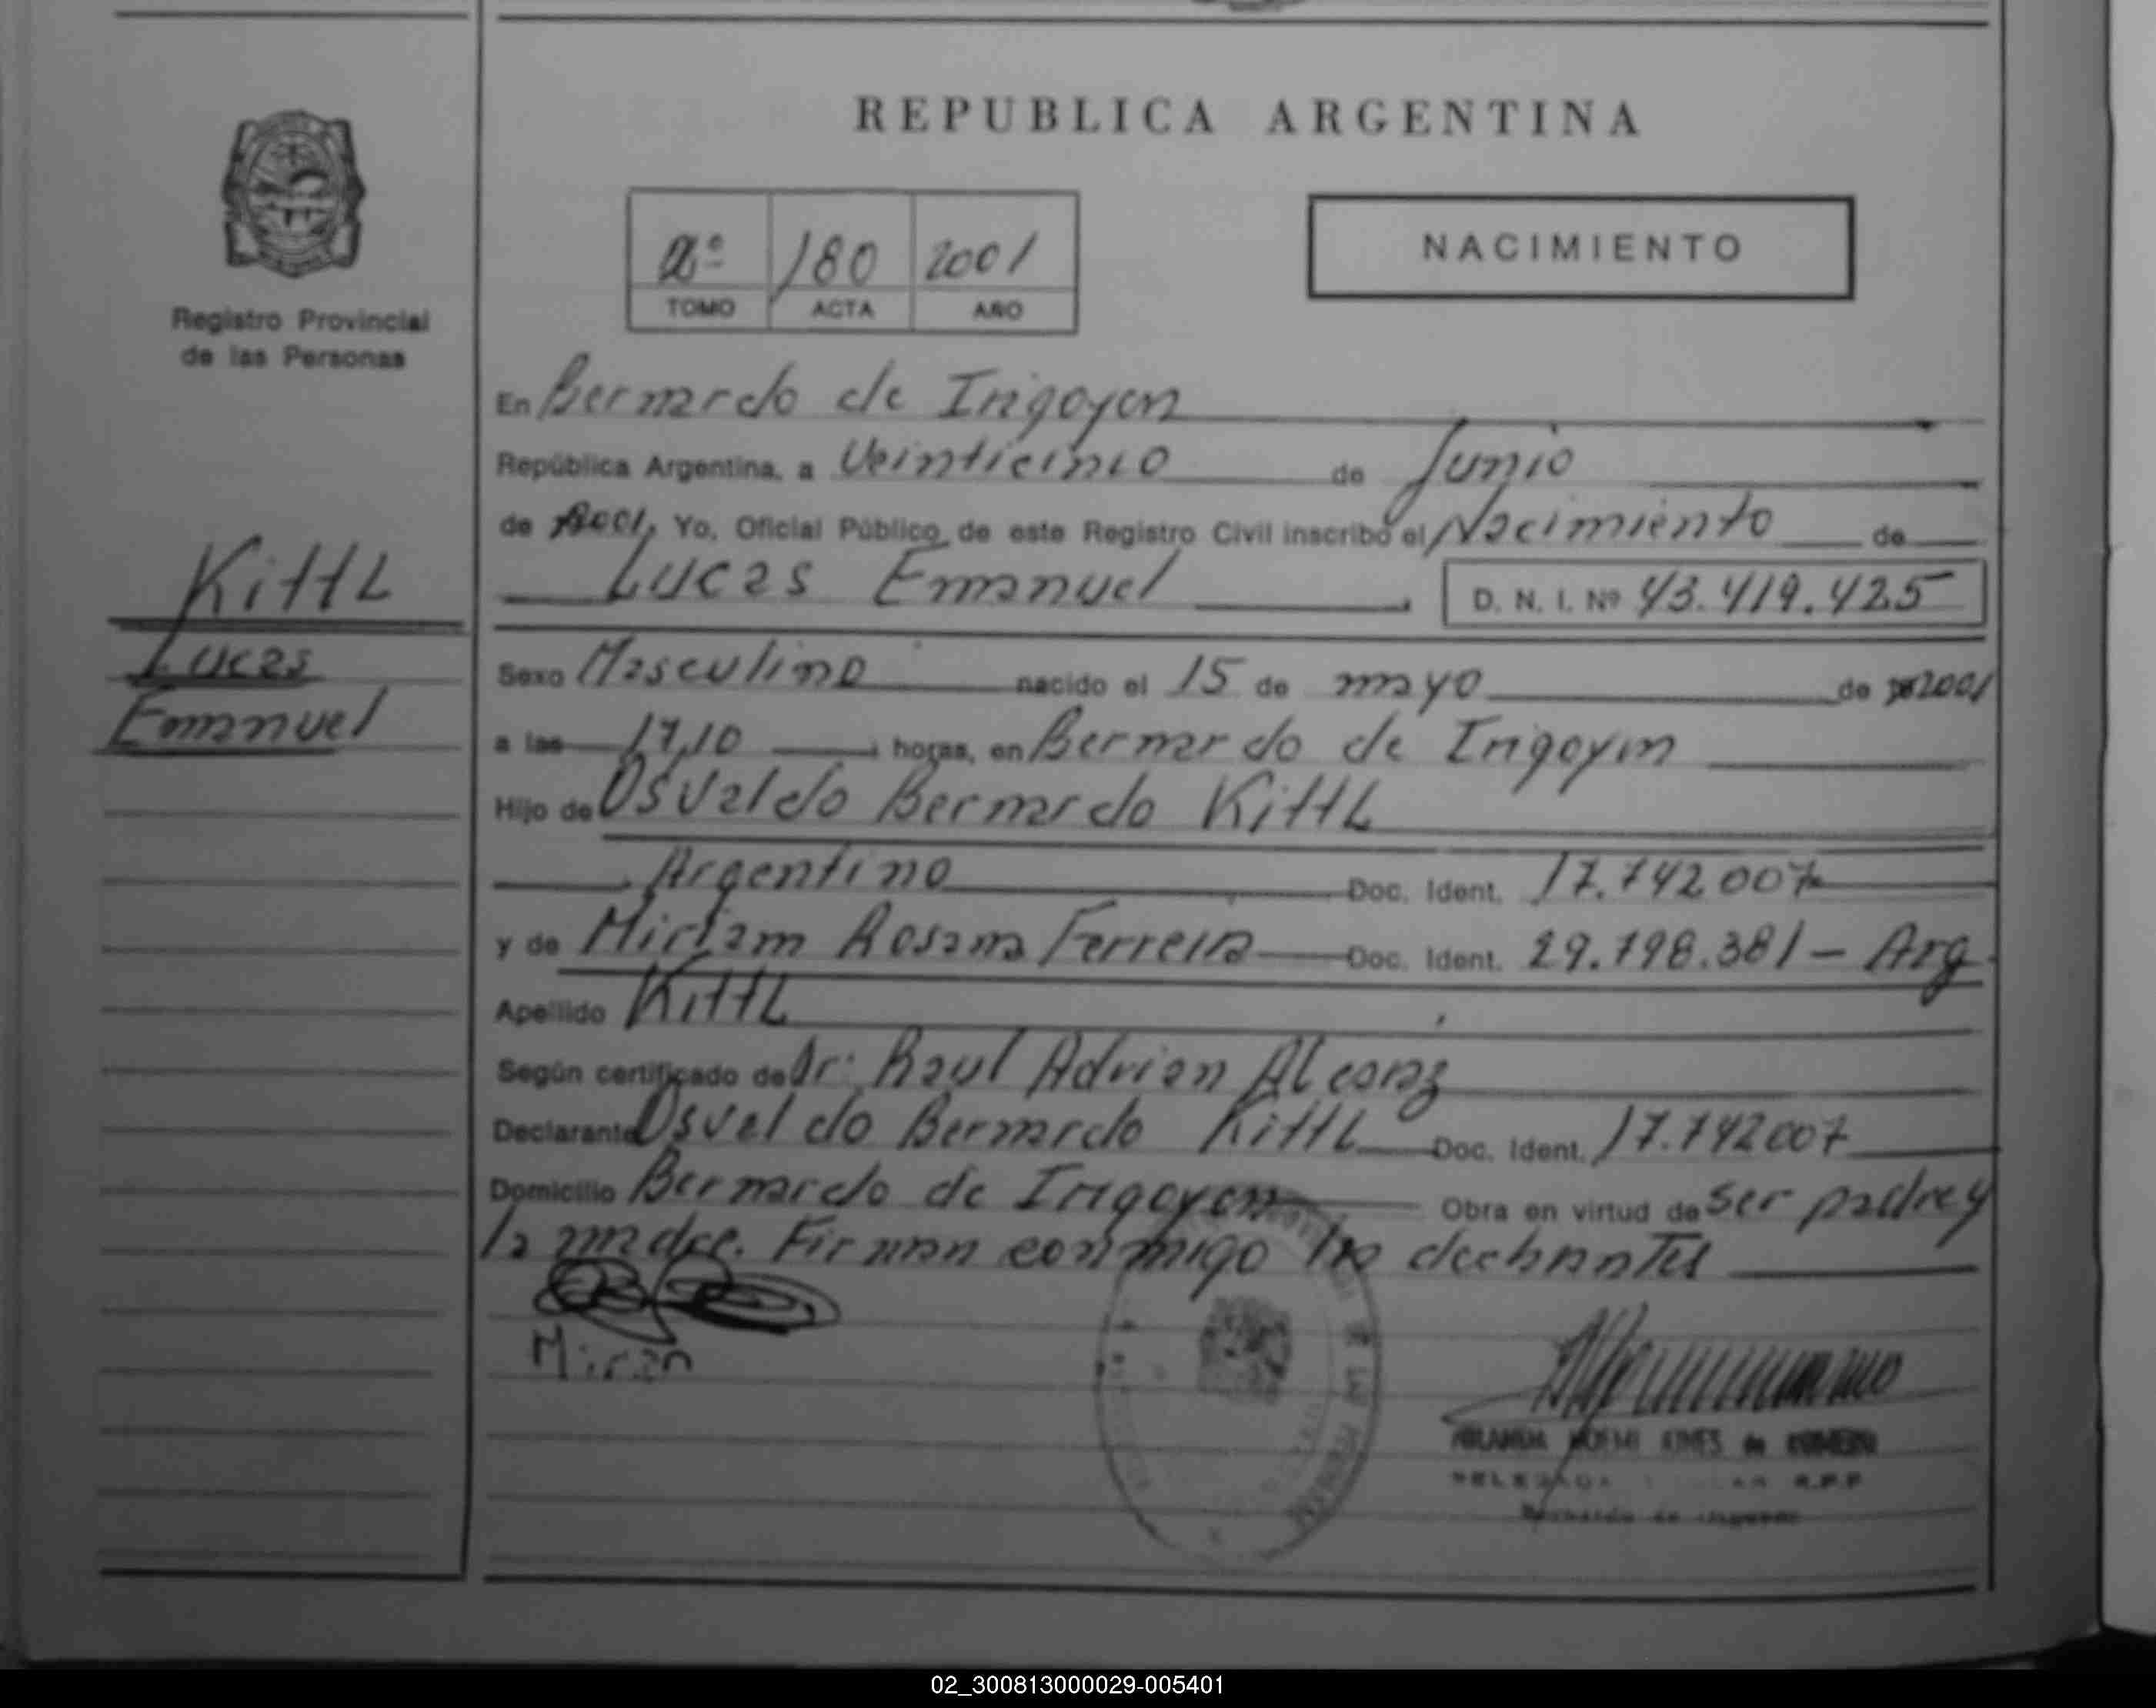 REPUBLICA ARGENTINA
2º 180 2001
TOMO ACTA AÑO
NACIMIENTO
Registro Provincial
de las Personas
En Bernardo de Irigoyen
República Argentina, a Veinticinco de Junio
de 2001, Yo, Oficial Público de este Registro Civil inscribo el Nacimiento de
Lucas Emanuel D. N. I. Nº 43.419.425
KittL
Lucas
Emanuel
Sexo Masculino nacido el 15 de mayo de 2001
a las 17,10 horas, en Bernardo de Irigoyen
Hijo de Osvaldo Bernardo KittL
Argentino Doc. Ident. 17.742007
y de Miriam Rosana Ferreira Doc. Ident. 29.798.381 - Arg.
Apellido KittL
Según certificado de Dr. Raul Adrian Alcaraz
Declarante Osvaldo Bernardo KittL Doc. Ident. 17.742007
Domicilio Bernardo de Irigoyen Obra en virtud de ser padre y
la madre. Firman conmigo los declarantes
NOEMI de
R.P.P
Bernardo de Irigoyen
02_300813000029-005401